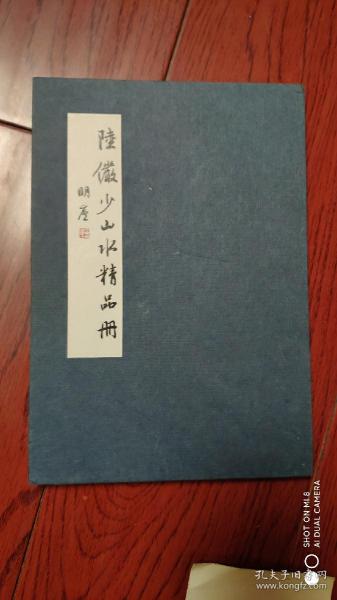 陸儼少山水精品冊
明廬
SHOT ON MI 8
AI DUAL CAMERA
孔夫子旧书网
www.kongfz.com